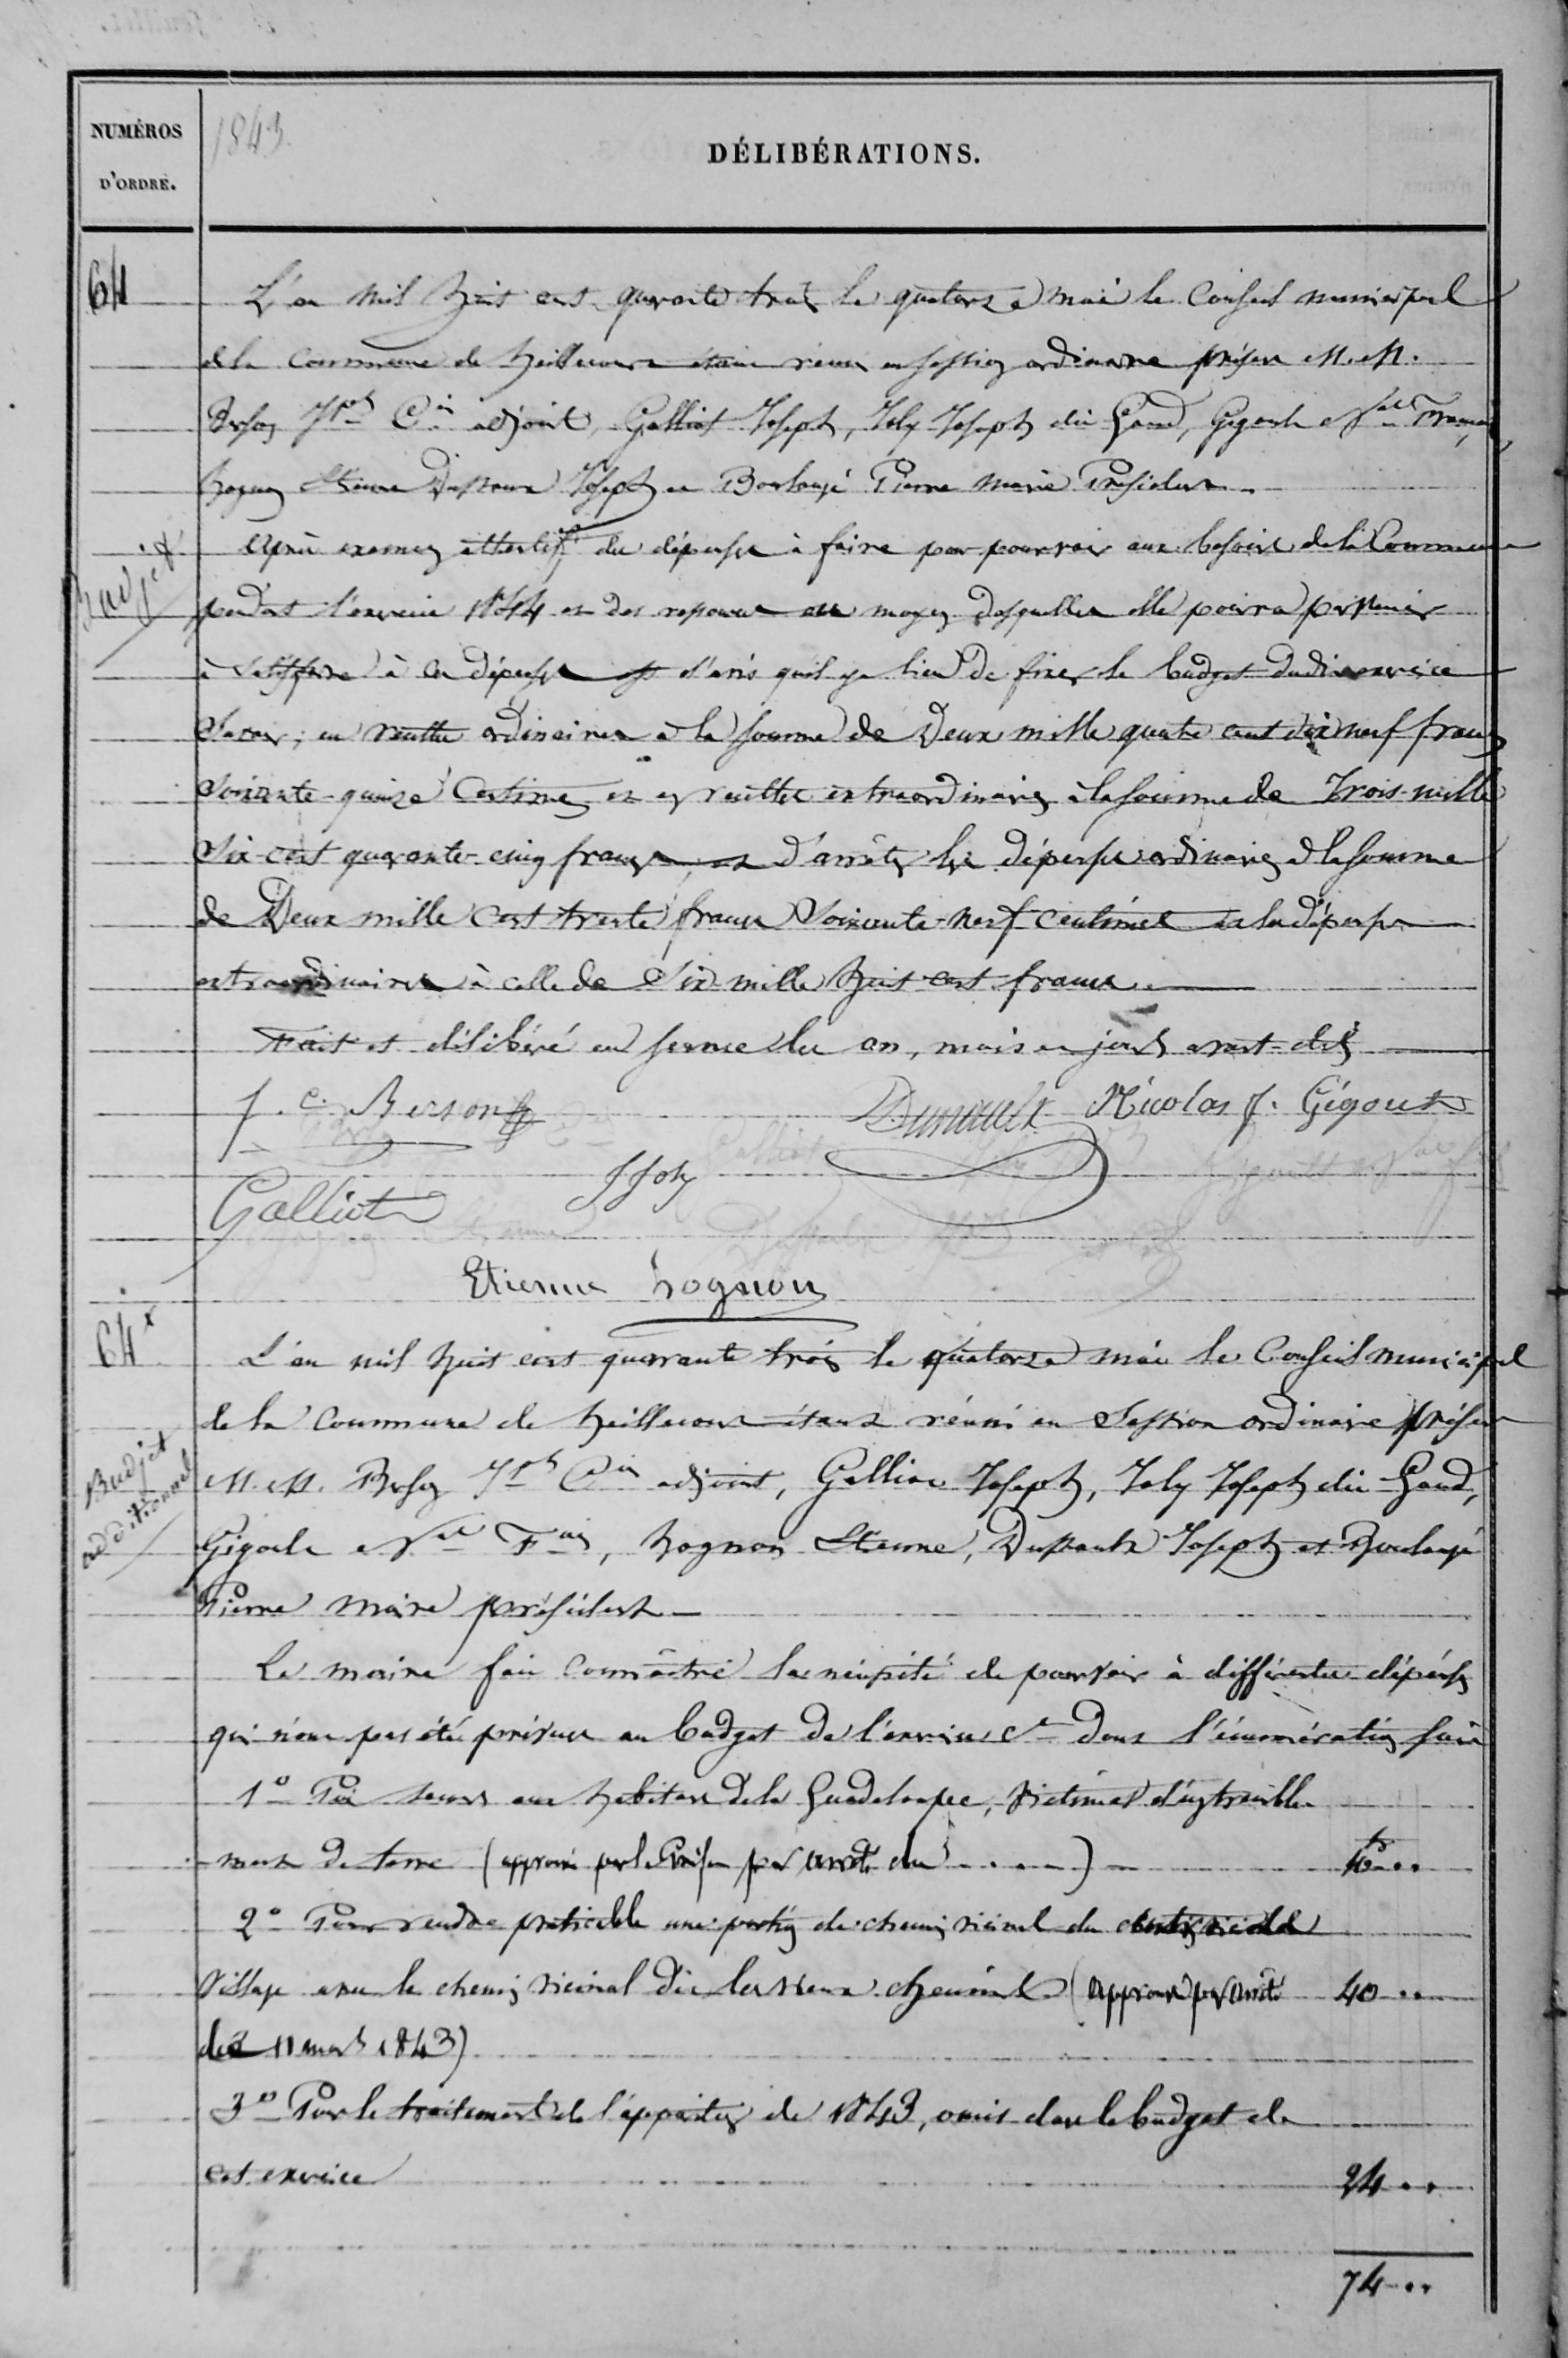 NUMÉROS
D'ORDRE.
1843.
DÉLIBÉRATIONS.
64
L'an mil huit cent quarante trois le quatorze mai le Conseil municipal
de la Commune de heillecourt étant réuni en session ordinaire présens M.M.
Jph adjoint, Galliot Joseph, Joly Joseph dit Gand, Gigoult Nas François,
hognon Etienne Joseph et Boulangé Pierre maire Président.
Budjet
Après examen attentif des dépenses à faire pour pourvoir aux besoins de la Commune
pendant l'exercice 1844 et des ressources au moyen desquelles elle pourra parvenir
à satisfaire à ces dépenses est d'avis qu'il y a lieu de fixer le budget dudit exercice
Savoir, en recettes ordinaires à la somme de Deux mille quatre cent dix neuf francs
Soixante-quinze Centimes et en recettes extraordinaires à la somme de Trois-mille
Six-cent quarante-cinq francs, et d'arrêter les dépenses ordinaires à la somme
de Deux mille cent trente francs Soixante-neuf centimes et les dépenses
extraordinaires à celle de Six mille huit cent francs.
Fait et délibéré en séance les an, mois et jours avant-dits
J. C. Berson
Nicolas f. Gégout
JJoly
Galliot
Etienne hognon
64x
L'an mil huit cent quarante trois le quatorze mai le Conseil municipal
de la commune de heillecourt étant réuni en Session ordinaire présens
Budjet
additionnel
M.M. Jph adjoint, Galliot Joseph, Joly Joseph dit Gand,
Gigoult Nas Fois, hognon Etienne, Joseph et Boulangé
Pierre maire président
Le maire fait connaître la nécessité de pourvoir à différentes dépenses
qui n'ont pas été prévues au budget de l'exercice Ct dont l'énumération suit
1° Pour secours aux habitans de la Guadeloupe, victimes d'un tremble
ment de terre (approuvé par le Préfet par arrêté du ....) 10 ..
2° Pour rendre praticable une partie de chemin vicinal du
village avec le chemin vicinal dit les vieux chemins (approuvé par arrêté 40 ..
du 11 mars 1843)
3° Pour le traitement de l'appariteur de 1843, omis dans le budget de
cet exercice 24 ..
74 ..